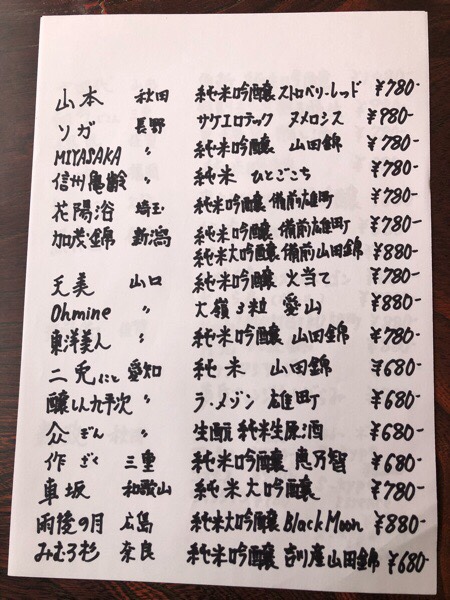 山本 秋田 純米吟醸 ストロベリーレッド ¥780-
ソガ 長野 サケエロテック ヌメロシス ¥980-
MIYASAKA 〃 純米吟醸 山田錦 ¥780-
信州亀齢 〃 純米 ひとごこち ¥780-
花陽浴 埼玉 純米吟醸 備前雄町 ¥780-
加茂錦 新潟 純米吟醸 備前雄町 ¥780-
純米大吟醸 備前山田錦 ¥880-
天美 山口 純米吟醸 火当て ¥780-
Ohmine 〃 大嶺3粒 愛山 ¥880-
東洋美人 〃 純米吟醸 山田錦 ¥780-
二兎にと 愛知 純米 山田錦 ¥680-
醸し人九平次 〃 ラ・メゾン 雄町 ¥680-
㐂 ぎん 〃 生酛 純米生原酒 ¥680-
作 ざく 三重 純米吟醸 恵乃智 ¥680-
車坂 和歌山 純米大吟醸 ¥780-
雨後の月 広島 純米大吟醸 Black Moon ¥880-
みむろ杉 奈良 純米吟醸 吉川産山田錦 ¥680-